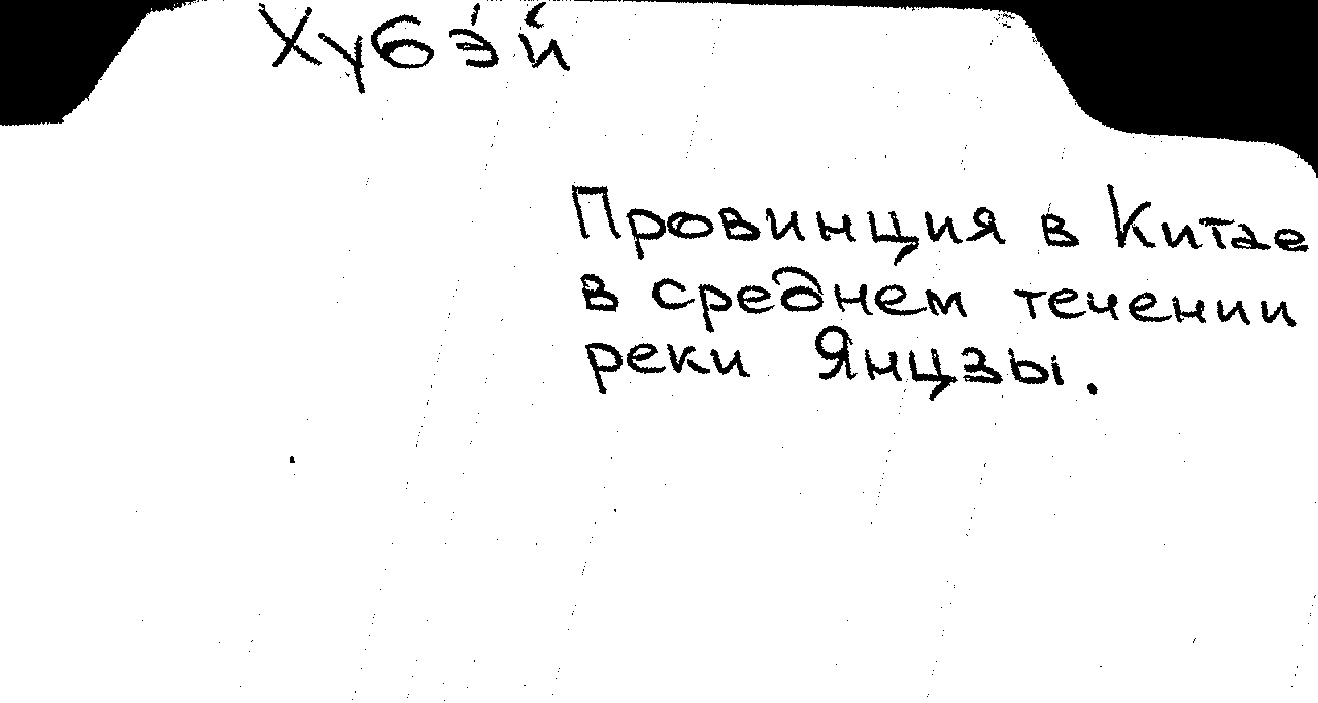 Хубэ́й
Провинция в Китае
в среднем течении
реки Янцзы.